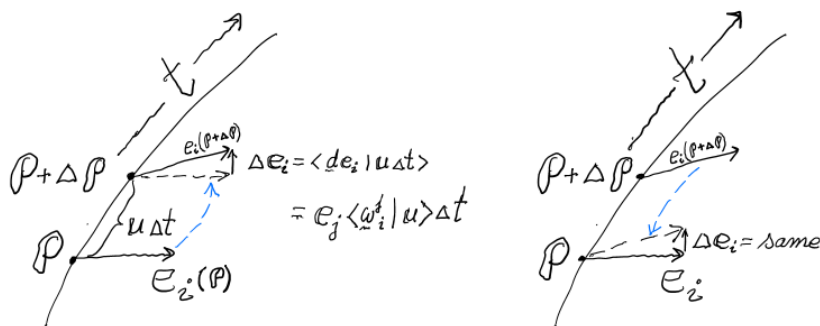 t
e_i(P+ΔP)
P+ΔP
Δe_i = <d̲e_i | uΔt>
uΔt
= e_j <ω̲^j_i | u> Δt
P
e_i(P)
t
e_i(P+ΔP)
P+ΔP
P
Δe_i = same
e_i